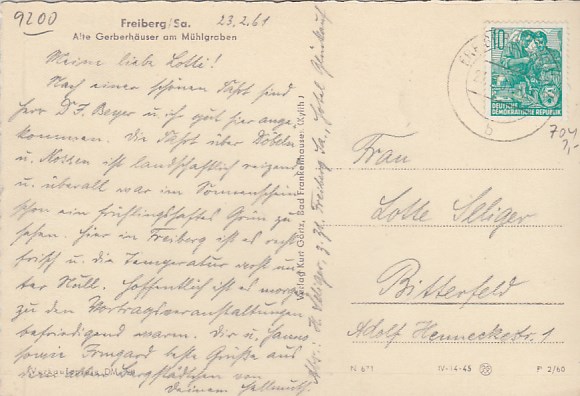 9200
Freiberg/Sa.
23.2.61
Alte Gerberhäuser am Mühlgraben
Meine liebe Lotti!
Nach einer schönen Fahrt sind
Herr Dr. F. Beyer u. ich gut hier ange-
kommen. Die Fahrt über Döbeln
u. Nossen ist landschaftlich reizend
u. überall war im Sonnenschein
schon ein frühlingshaftes Grün zu
sehen. Hier in Freiberg ist es recht
frisch u. die Temperatur
unter Null. Hoffentlich ist es morgen
zu den Vortragsveranstaltungen
befriedigend warm. Dir u. Hanno
sowie Irmgard beste Grüße aus
dem Bergstädtchen von
Deinem Hellmuth.
Verlag Kurt Göritz, Bad Frankenhausen (Kyffh.)
Abs.: H. Seliger, z. Zt. Freiberg Sa., Hotel
10
DEUTSCHE
DEMOKRATISCHE REPUBLIK
b
704
Frau
Lotte Seliger
Bitterfeld
Adolf Henneckestr. 1
N 671
IV-14-45
P 2/60